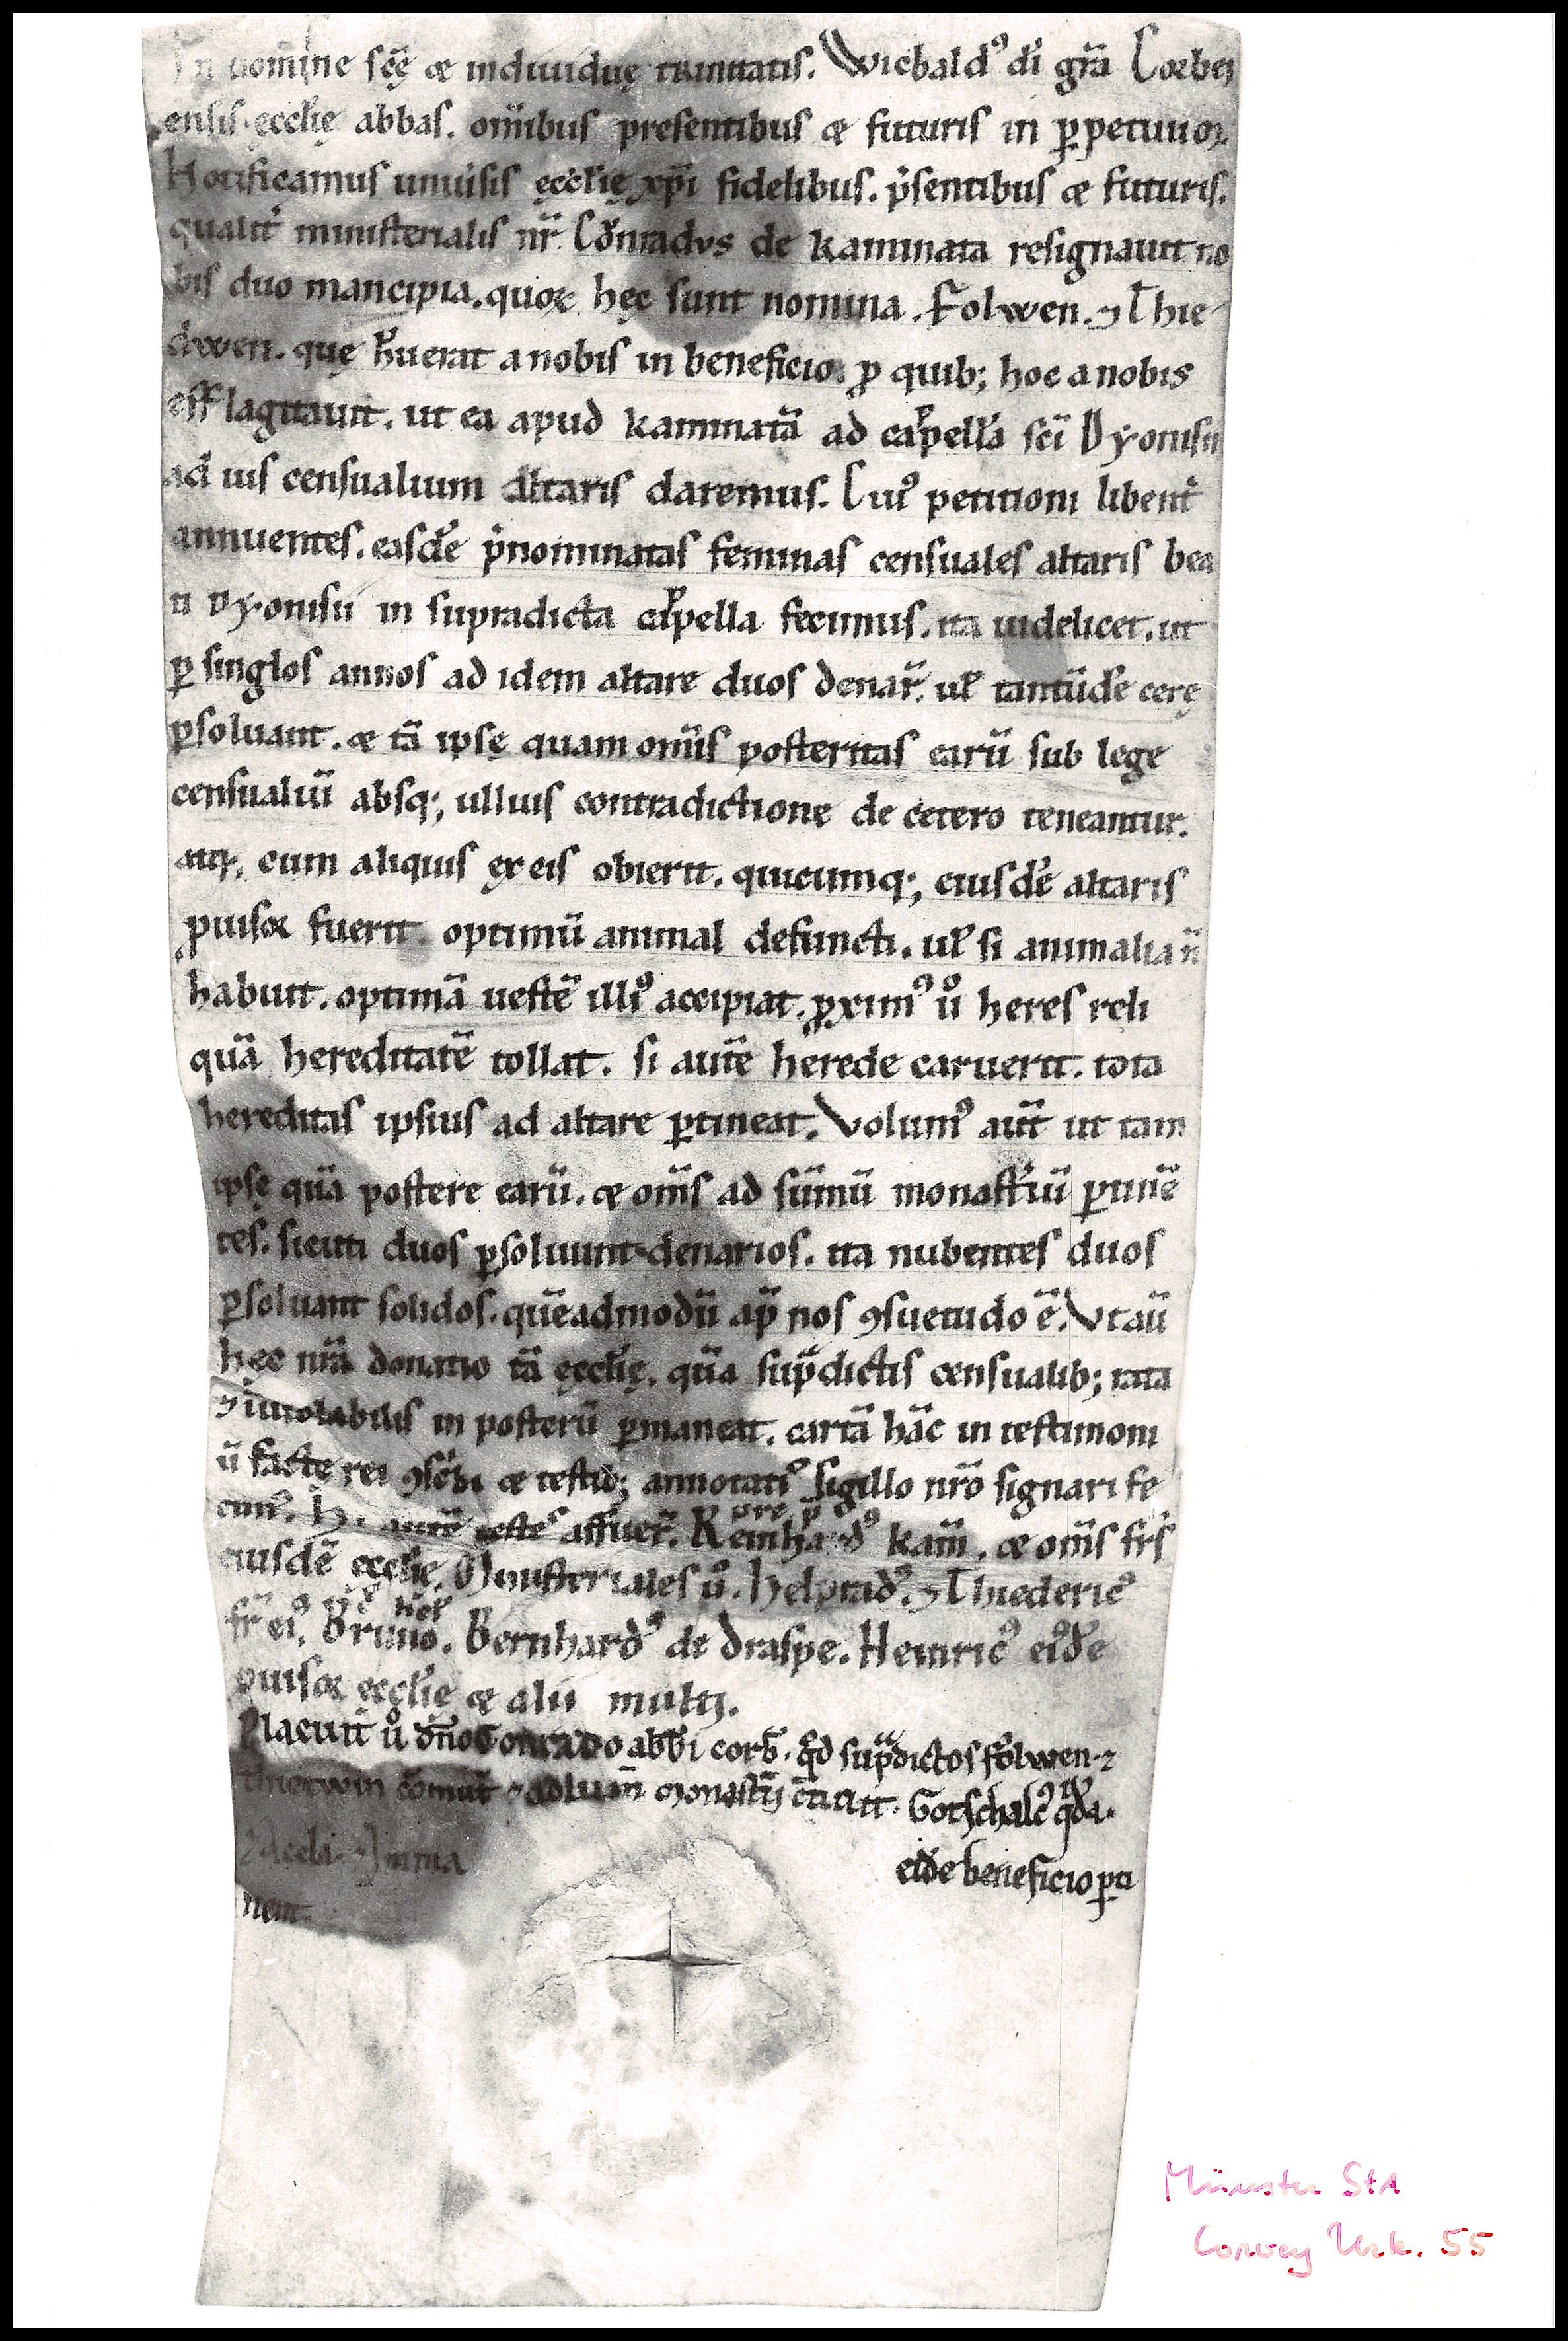 In nomine scę & indiuiduę trinitatis. Wicbald᾿ di gr̄a Corbei
ensis ęccl̄ię abbas. om̄ibus presentibus & futuris in ꝑpetuum.
Notificamus uniu̾sis ęccl̄ię xp̄i fidelibus. p̄sentibus & futuris.
qualit̾ ministerialis nr̄ Cōnradvs de kaminata resignauit no
bis duo mancipia. quoꝝ hęc sunt nomina. Folwen. ⁊ Thie
dwen. quę h̄uerat a nobis in beneficio. ꝓ quib; hoc a nobis
efflagitauit. ut ea apud kaminatā ad cappellā sc̄i Dyonisii
ad ius censualium altaris daremus. Cui᾿ petitioni libent̾
annuentes. easdē p̄nominatas feminas censuales altaris bea
ti Dyonisii in supradicta cappella fecimus. ita uidelicet. ut
ꝑ singlos annos ad idem altare duos denar̄. ul̄ tantūdē cerę
ꝑsoluant. & tā ipsę quam om̄is posteritas earū sub lege
censualiū absq; ullius contradictione de cetero teneantur.
atq; cum aliquis ex eis obierit. quicumq; eiusdē altaris
ꝓuisor fuerit. optimū animal defuncti. ul̄ si animalia n̄
habuit. optimā uestē illi᾿ accipiat. ꝓxim᾿ ů heres reli
quā hereditatē tollat. si autē herede caruerit. tota
hereditas ipsius ad altare ꝑtineat. Volum᾿ aut̄ ut tam
ipsę quā postere earū. & om̄s ad sūmū monast̾iū ꝑtinē
tes. sicuti duos ꝑsoluunt denarios. ita nubentes duos
ꝑsoluant solidos. quēadmodū ap̄ nos ꝯsuetudo ē. Vt aū
hęc nr̄a donatio tā ęccl̄ię. quā sup̄dictis censualib; rata
⁊ īuiolabilis in posterū ꝑmaneat. cartā hāc in testimoni
ū factę rei ꝯsc̄bi & testib; annotati᾿ sigillo nr̄o signari fe
cim᾿. H. autē testes affuer̄. Reinhard᾿ p̄p kam̄. & om̄s fr̄s
eiusdē ęccl̄ię. Ministeriales ů. Helprad᾿. ⁊ Thiederic᾿
fr̄ ei᾿. Bruno. Bernhard᾿ de Draspe. Heinric᾿ ei᾿dē
ꝓuisor ęccl̄ię & alii multi.
Placuit ů dn̄o Conrado abb̄i corb̄. qd̄ sup̄dictos folwen ⁊
thietwin cōmut̄ ⁊ ad monast̄ij Gotschalc᾿
⁊ Aceli. Imma eidē beneficio ꝑti
nent.
Münster StA
Corvey Urk. 55